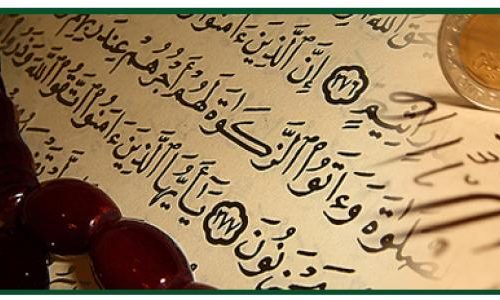 حق الله
أثيم ٢٧٦ إن الذين ءامنوا
صلوة وءاتوا الزكوة لهم أجرهم عند ربهم
يحزنون ٢٧٧ يأيها الذين ءامنوا اتقوا الله وذروا